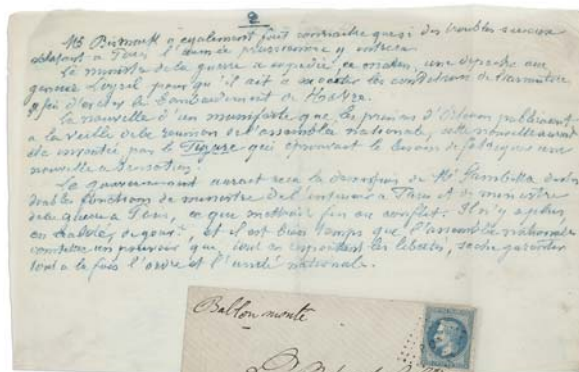 2
Mr Bismark a également fait connaître que si des troubles sérieux
éclataient à Paris l'armée prussienne y entrera.
Le ministre de la guerre a expédié, ce matin, une dépêche au
général Loysel pour qu'il ait à exécuter les conditions de l'armistice
afin d'éviter le bombardement de Havre.
La nouvelle d'un manifeste que les princes d'Orléans publieraient
à la veille de la réunion de l'assemblée nationale, cette nouvelle aurait
été inventée par le Figaro qui éprouvait le besoin de fabriquer une
nouvelle à sensation.
Le gouvernement aurait reçu la démission de Mr Gambetta
les fonctions de ministre de l'intérieur à Paris et de ministre
de la guerre à Paris, ce que mettrait fin au conflit. Il n'y a plus,
en réalité, de gouvt et il est bien temps que l'assemblée nationale
constitue un pouvoir que, tout en respectant les libertés, sache garantir
tout à la fois l'ordre et l'unité nationale.
Ballon monté